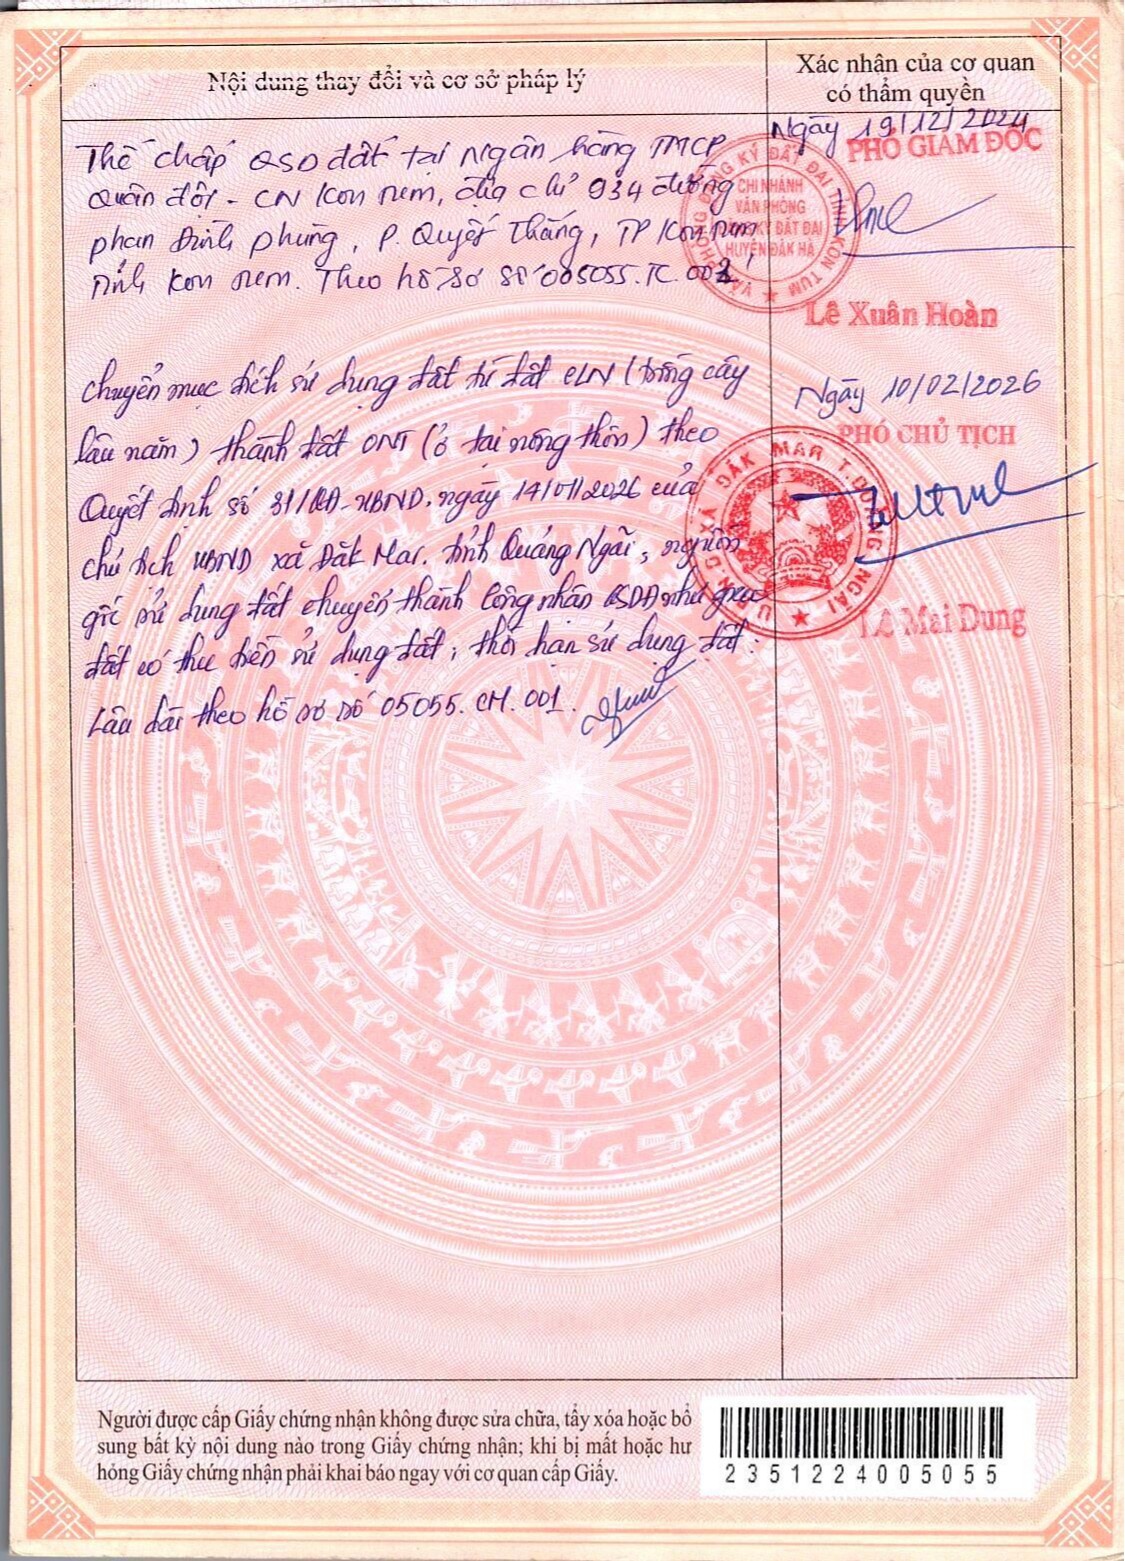 Nội dung thay đổi và cơ sở pháp lý
Xác nhận của cơ quan
có thẩm quyền
Thế chấp QSD đất tại Ngân hàng TMCP
Quân đội - CN Kon Tum, địa chỉ 934 đường
Phan Đình Phùng, P. Quyết Thắng, TP Kon Tum,
Tỉnh Kon Tum. Theo hồ sơ số 005055.TC.002
Ngày 19/12/2024
PHÓ GIÁM ĐỐC
VĂN PHÒNG ĐĂNG KÝ ĐẤT ĐAI TỈNH KON TUM
CHI NHÁNH
VĂN PHÒNG
ĐĂNG KÝ ĐẤT ĐAI
HUYỆN ĐĂK HÀ
Lê Xuân Hoàn
Chuyển mục đích sử dụng đất từ đất CLN (trồng cây
lâu năm) thành đất ONT (ở tại nông thôn) theo
Quyết định số 31/QĐ-UBND, ngày 14/01/2026 của
chủ tịch UBND xã Đăk Mar, tỉnh Quảng Ngãi, nguồn
gốc sử dụng đất chuyển thành Công nhận QSDĐ như giao
đất có thu tiền sử dụng đất, thời hạn sử dụng đất:
Lâu dài theo hồ sơ số 05055.CM.001.
Ngày 10/02/2026
PHÓ CHỦ TỊCH
U.B.N.D XÃ ĐĂK MAR T. QUẢNG NGÃI
Lê Mai Dung
Người được cấp Giấy chứng nhận không được sửa chữa, tẩy xóa hoặc bổ
sung bất kỳ nội dung nào trong Giấy chứng nhận; khi bị mất hoặc hư
hỏng Giấy chứng nhận phải khai báo ngay với cơ quan cấp Giấy.
2351224005055